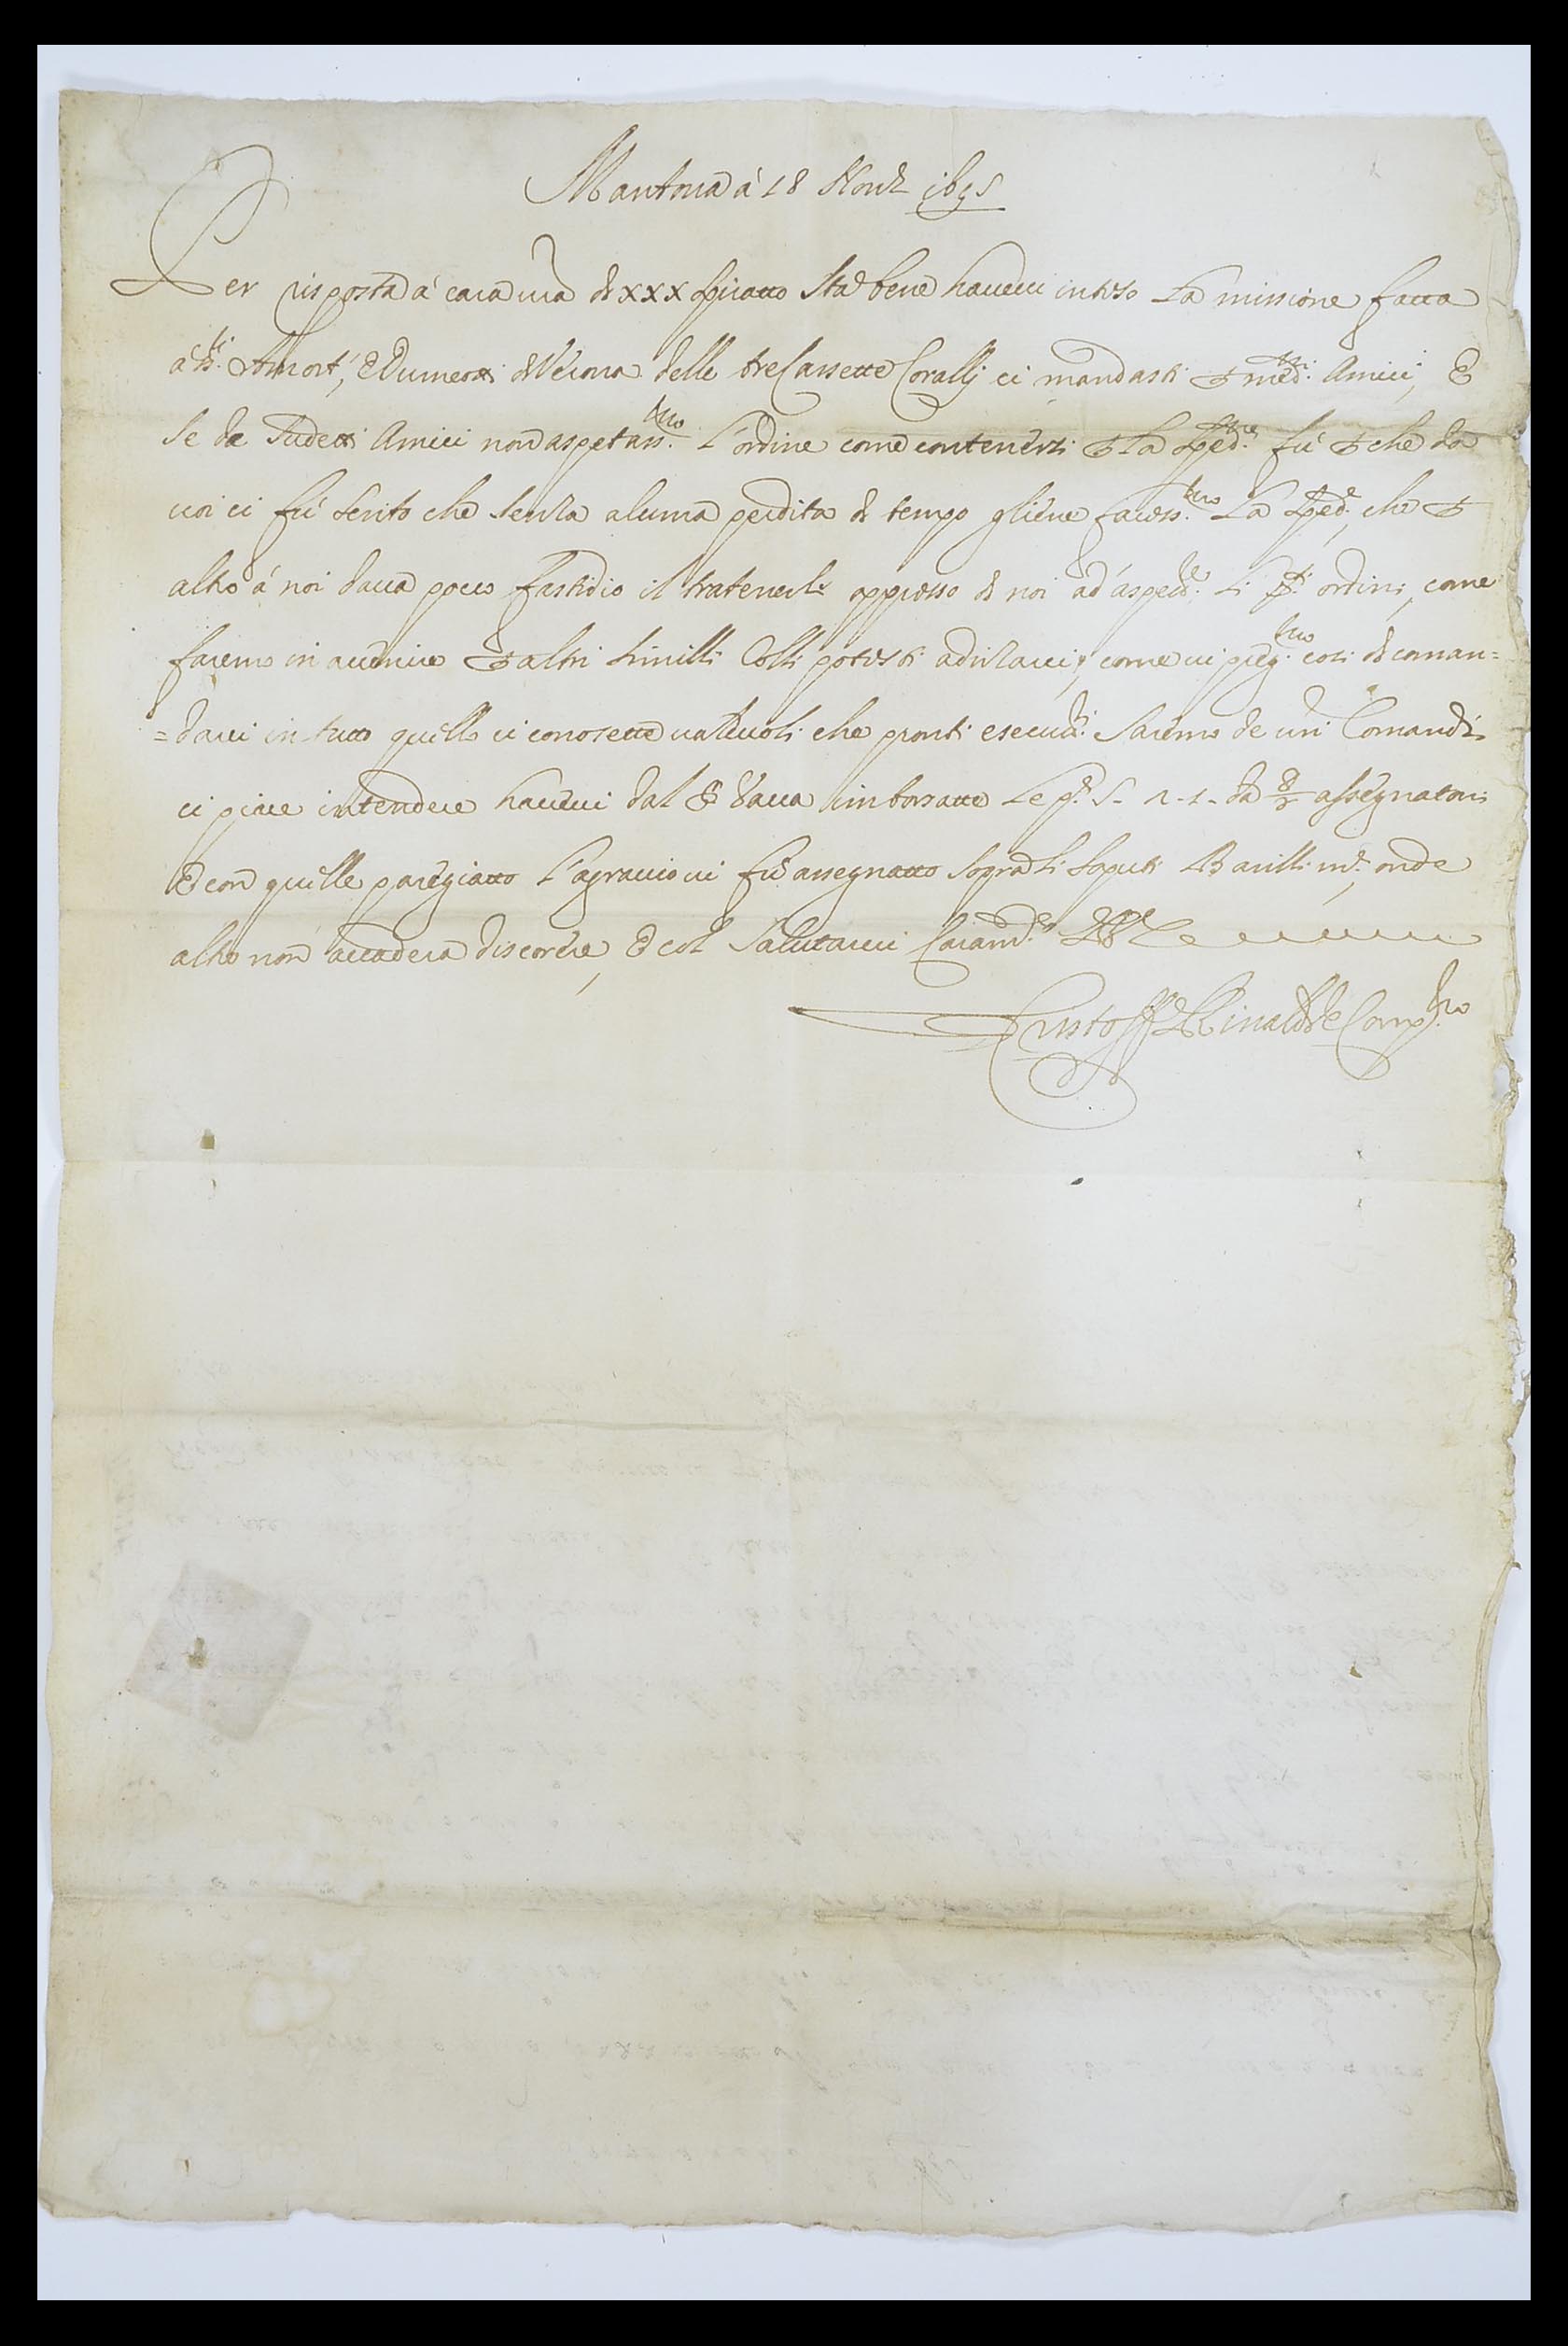 Mantova à 18 Novr
Per risposta à cara vra di xxx spiratto sta bene havervi inteso La missione fatta
à ss.ri Amort, e Dumeotti di Verona delle tre Cassette Coralli ci mandasti P med.tti Amici, E
se da sudetti Amici non aspetass.imo L'ordine come contenersi P La sped.ne fù P che da
voi ci fù scrito che senza alcuna perdita di tempo gliene facess.imo La sped.e, che P
altro à noi dava poco fastidio il tratenerle appresso di noi ad aspet.e Li ordini, come
faremo in avenire P altri simili Colli potesti adrizarci, come vi preg.imo così di coman=
=darci in tutto quello ci conoscette valevoli che pronti esecut.ri saremo de vri Comandi
ci piace intendere havervi dal Sr Vacca rimborsatto Le assegnatovi
E con quelle paregiatto L'agravio vi fù assegnatto sopra Li saputi Barilli onde
altro non accadera discorere, E col salutarvi Caram.te
Cristoff Rinald e Comp.